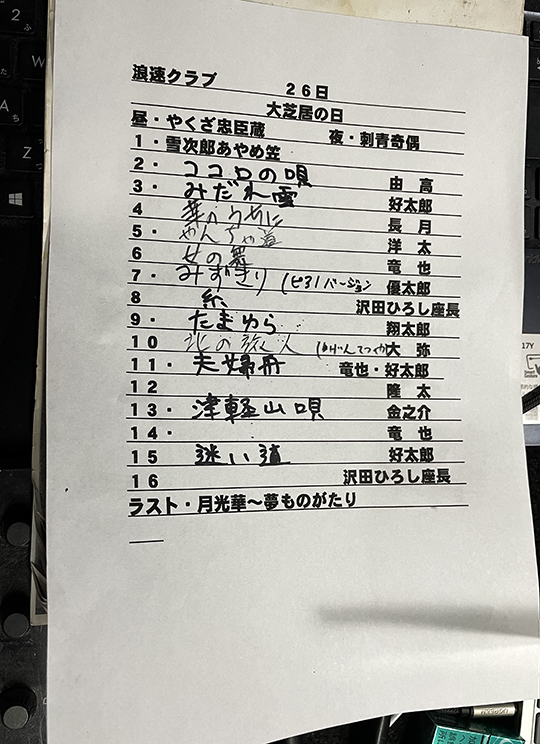 浪速クラブ
26日
大芝居の日
昼・やくざ忠臣蔵 夜・刺青奇偶
1・雪次郎あやめ笠
2・ ココロの唄 由 高
3・ みだれ雪 好太郎
4 長 月
5・ やんちゃ道 洋 太
6 女の舞 竜 也
7・ みずきり (ピアノバージョン 優太郎
8 糸 沢田ひろし座長
9・ たまゆら 翔太郎
10 北の旅人 大 弥
11・ 夫婦舟 竜也・好太郎
12 隆 太
13・ 津軽山唄 金之介
14・ 竜 也
15 迷い道 好太郎
16 沢田ひろし座長
ラスト・月光華～夢ものがたり
17Y
2
ふ
W
A
ち